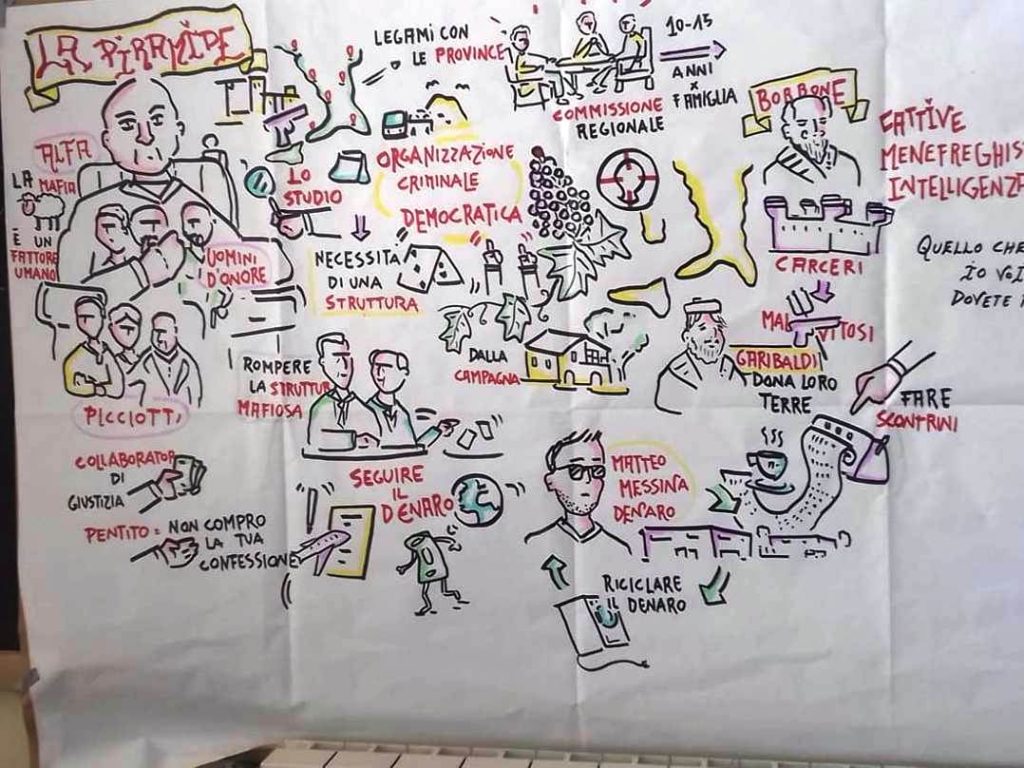 LA PIRAMIDE
ALFA
LA MAFIA
È UN
FATTORE
UMANO
UOMINI
D'ONORE
PICCIOTTI
COLLABORATOR
DI
GIUSTIZIA
PENTITO = NON COMPRO
LA TUA
CONFESSIONE
LEGAMI CON
LE PROVINCE
LO
STUDIO
ORGANIZZAZIONE
CRIMINALE
DEMOCRATICA
NECESSITA
DI UNA
STRUTTURA
ROMPERE
LA STRUTTUR
MAFIOSA
SEGUIRE
IL
DENARO
COMMISSIONE
REGIONALE
10-15
ANNI
x
FAMIGLIA
DALLA
CAMPAGNA
BORBONE
CARCERI
MAL VITOSI
GARIBALDI
DONA LORO
TERRE
CATTIVE
MENEFREGHIS
INTELLIGENZ
QUELLO CHE
IO VOI
DOVETE
FARE
SCONTRINI
MATTEO
MESSINA
DENARO
RICICLARE
IL DENARO